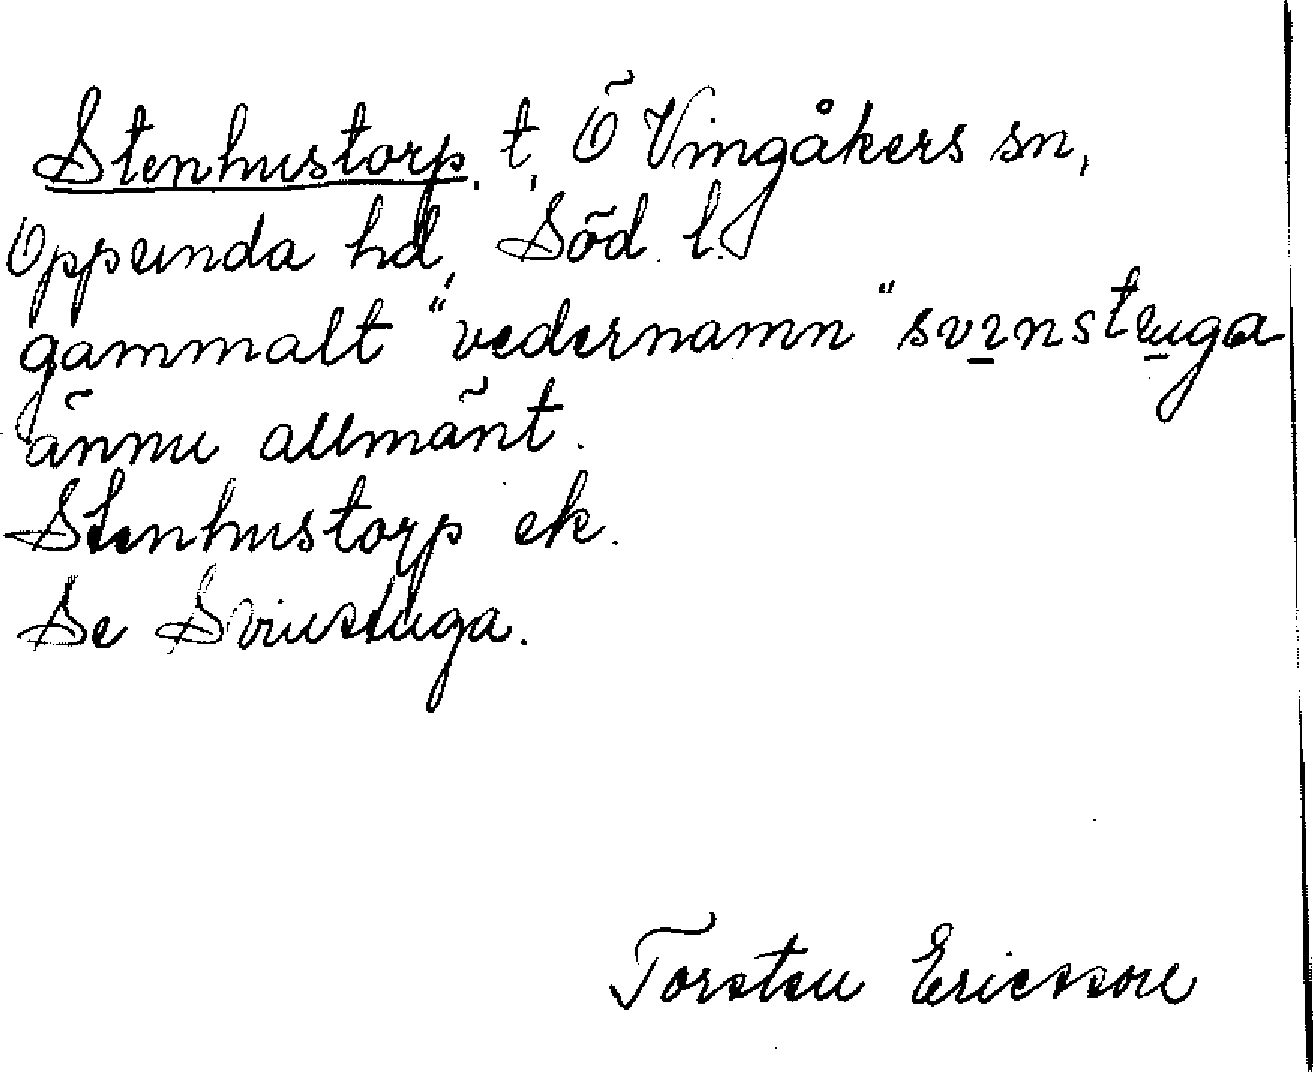 Stenhustorp, t, Ö Vingåkers sn,
Oppunda hd, Söd. l.
gammalt "vedernamn" svinstuga
ännu allmänt.
Stenhustorp ek.
Se Svinstuga.
Torsten Ericsson